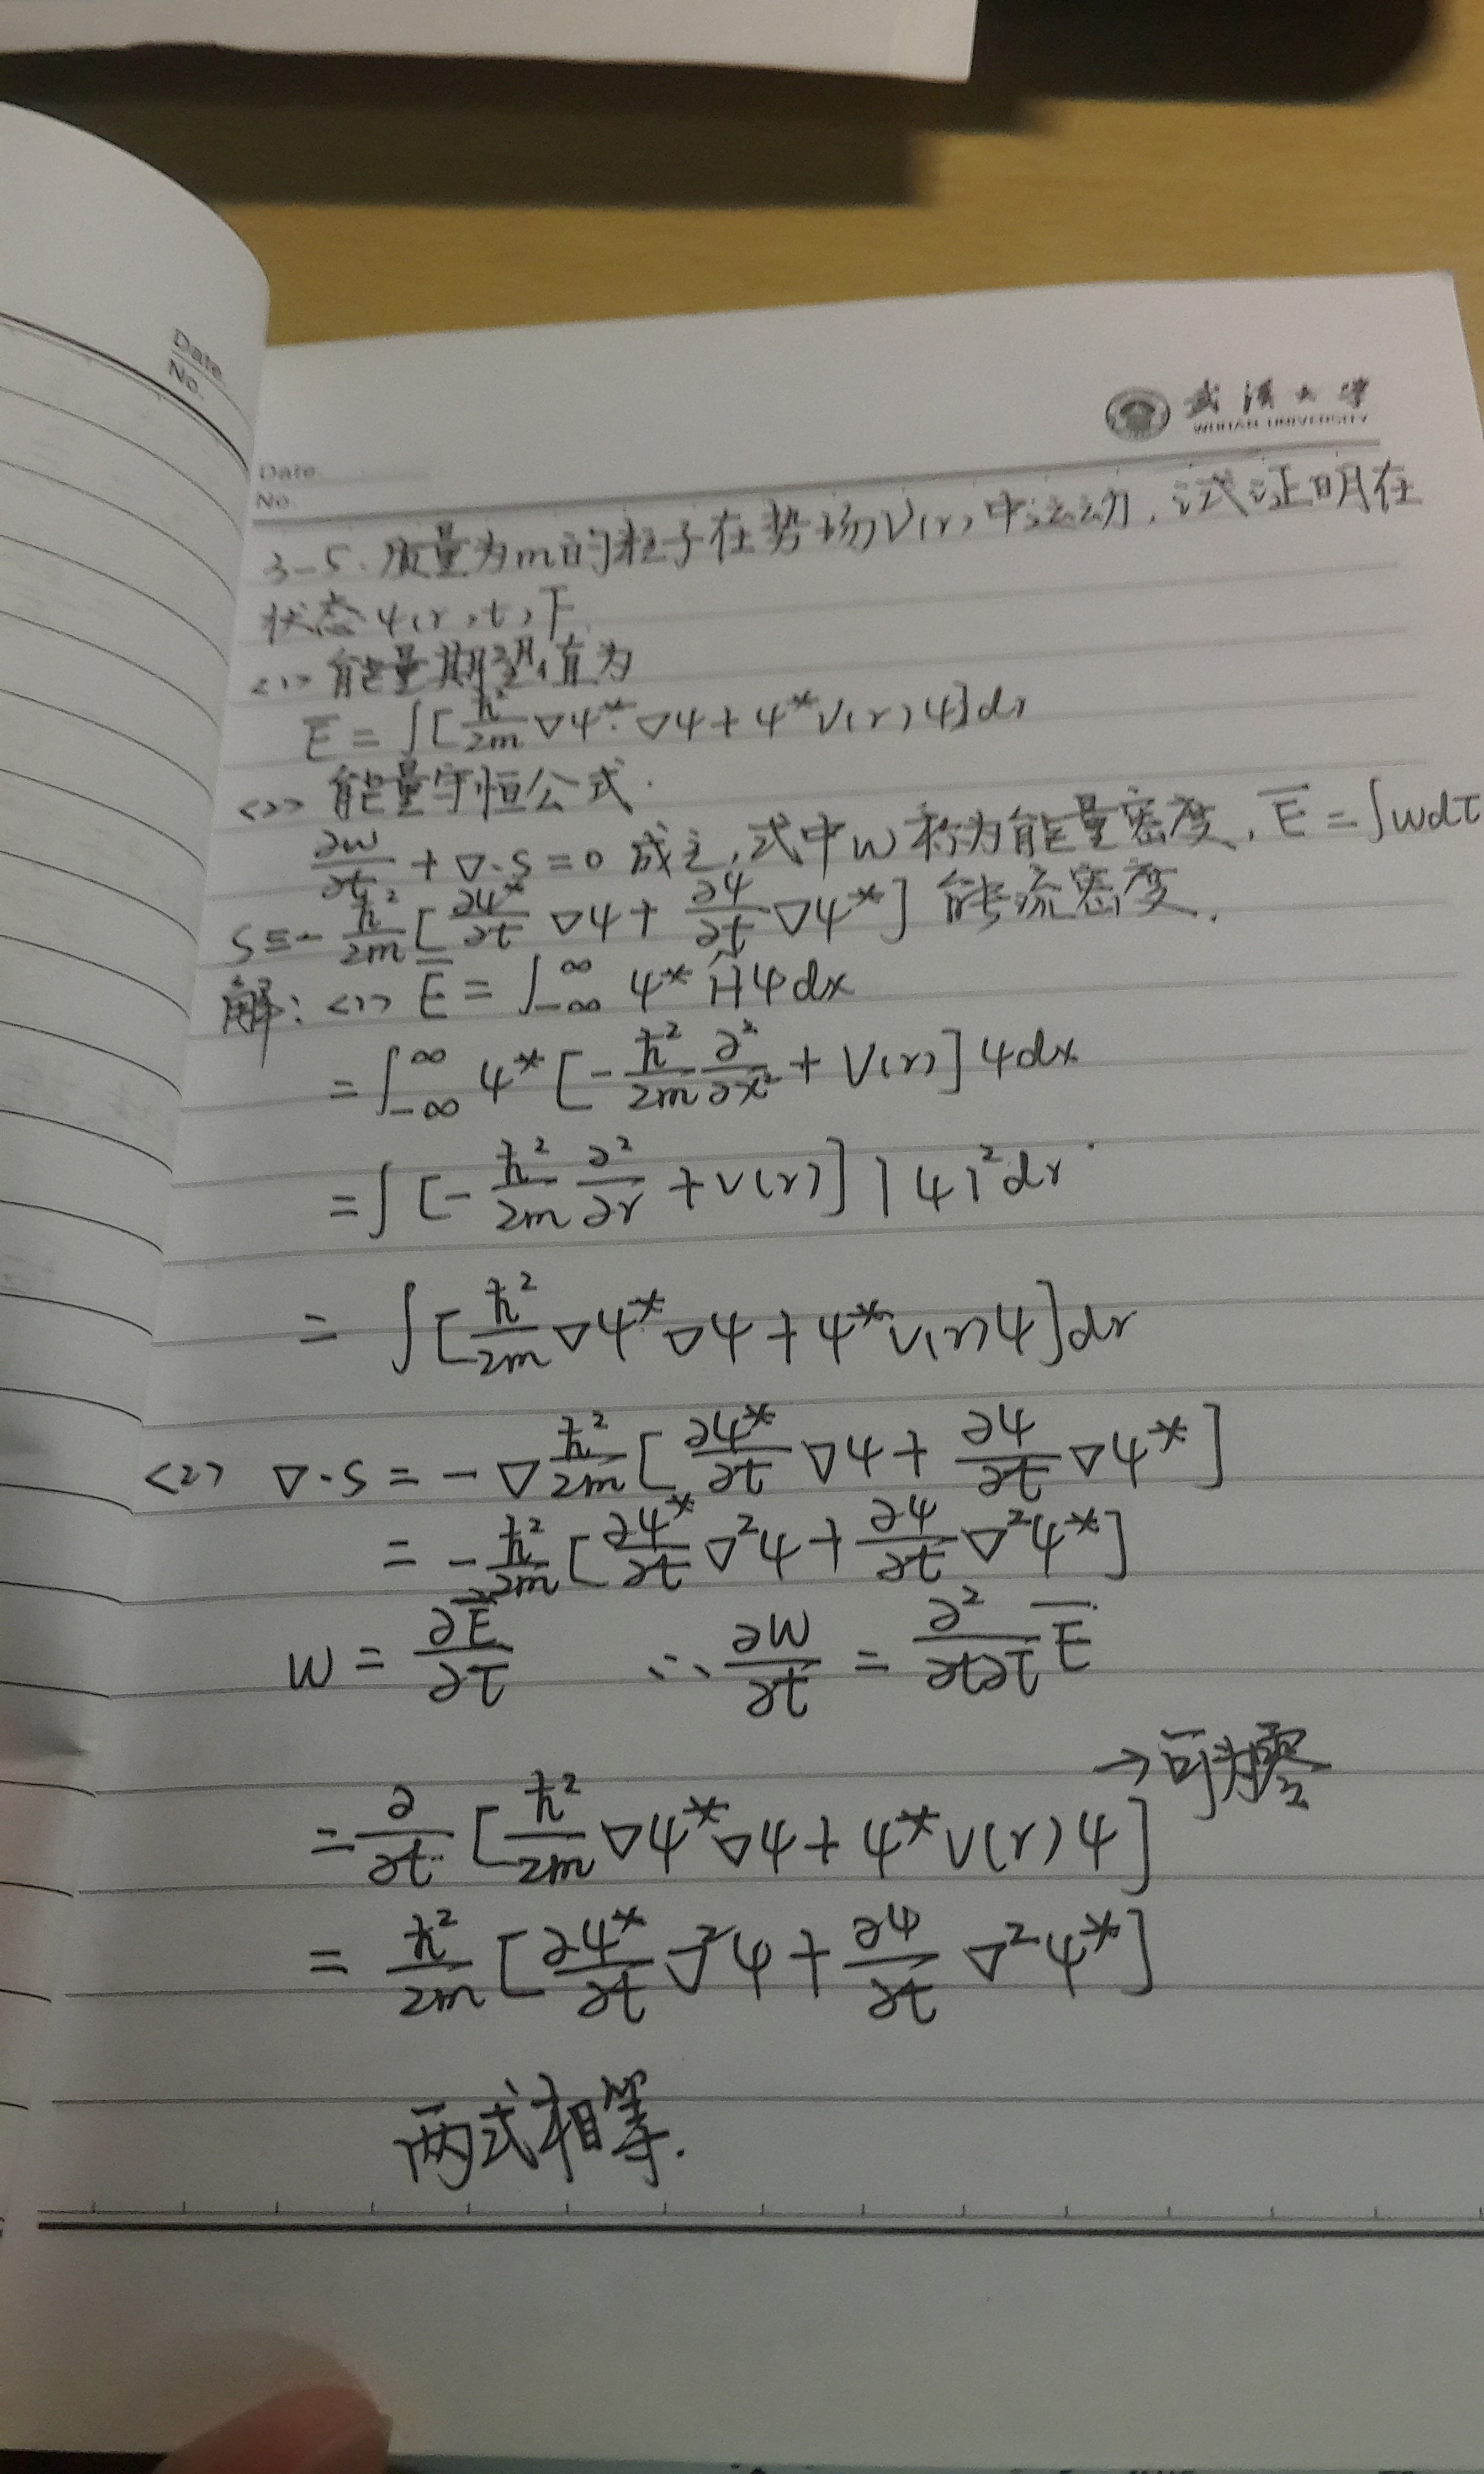 Date.
No.
武汉大学
WUHAN UNIVERSITY
Date.
No.
3-5. 质量为m的粒子在势场V(r)中运动,试证明在
状态ψ(r,t)下.
<1> 能量期望值为
E̅ = ∫[ħ²/2m ∇ψ*·∇ψ + ψ*V(r)ψ]dr
<2> 能量守恒公式.
∂w/∂t + ∇·S = 0 成立,式中w称为能量密度, E̅ = ∫wdτ
S = -ħ²/2m [∂ψ*/∂t ∇ψ + ∂ψ/∂t ∇ψ*] 能流密度.
解: <1> E̅ = ∫_{-∞}^{∞} ψ* Ĥψdx
= ∫_{-∞}^{∞} ψ* [-ħ²/2m ∂²/∂x² + V(r)]ψdx
= ∫ [-ħ²/2m ∂²/∂r + V(r)] |ψ|²dr
= ∫[ħ²/2m ∇ψ*∇ψ + ψ*V(r)ψ]dr
<2> ∇·S = -∇ ħ²/2m [∂ψ*/∂t ∇ψ + ∂ψ/∂t ∇ψ*]
= -ħ²/2m [∂ψ*/∂t ∇²ψ + ∂ψ/∂t ∇²ψ*]
w = ∂E̅/∂τ ∴ ∂w/∂t = ∂²/∂t∂τ E̅
→可为零
= ∂/∂t [ħ²/2m ∇ψ*∇ψ + ψ*V(r)ψ]
= ħ²/2m [∂ψ*/∂t ∇²ψ + ∂ψ/∂t ∇²ψ*]
两式相等.